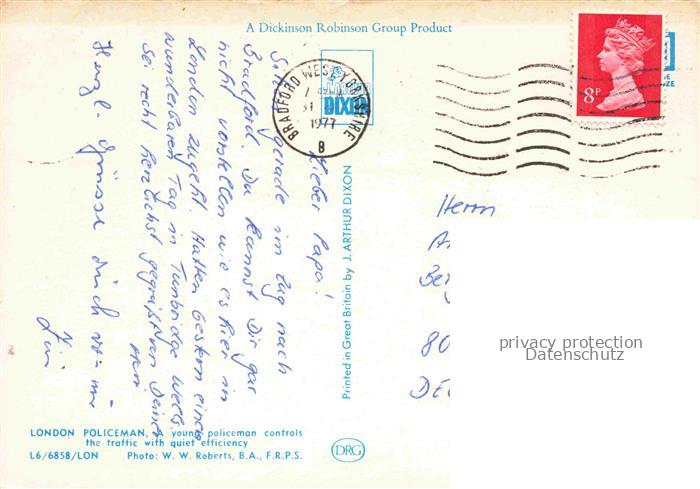 A Dickinson Robinson Group Product
BRADFORD WEST YORKSHIRE
31
1977
8
DIXON
8P
Lieber Papa!
Sitze gerade im Zug nach
Bradford. Du kannst Dir gar
nicht vorstellen wie es hier in
London zugeht. Hatten gestern einen
wunderbaren Tag in Tunbridge Wells.
Sei recht herzlichst gegrüßt von Deiner
Herzl. Grüsse auch von mir
Printed in Great Britain by J. ARTHUR DIXON
Herrn
A
Be
80
DE
privacy protection
Datenschutz
LONDON POLICEMAN, A young policeman controls
the traffic with quiet efficiency
L6/6858/LON Photo: W. W. Roberts, B.A., F.R.P.S.
DRG